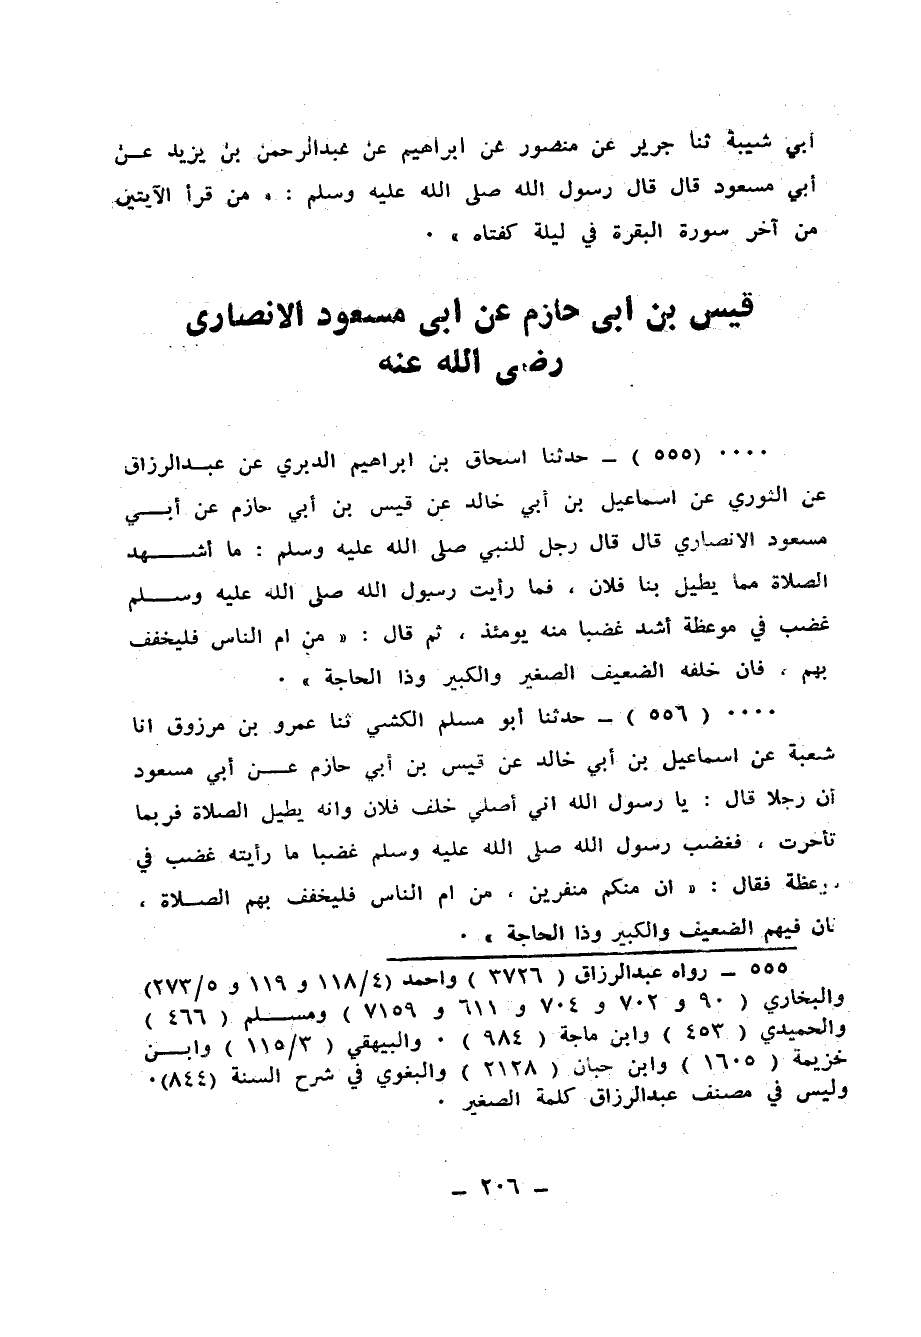 أبي شيبة ثنا جرير عن منصور عن ابراهيم عن عبدالرحمن بن يزيد عـــن
أبي مسعود قال قال رسول الله صلى الله عليه وسلم : « من قرأ الآيتين
من آخر سورة البقرة في ليلة كفتاه » ٠
قيس بن ابى حازم عن ابى مسعود الانصارى
رضى الله عنه
٠٠٠٠ (٥٥٥ ) ــ حدثنا اسحاق بن ابراهيم الدبري عن عبــدالرزاق
عن الثوري عن اسماعيل بن أبي خالد عن قيس بن أبي حازم عن أبـــي
مسعود الانصاري قال قال رجل للنبي صلى الله عليه وسلم : ما أشــــهد
الصلاة مما يطيل بنا فلان ، فما رأيت رسول الله صلى الله عليه وســـلم
غضب في موعظة أشد غضبا منه يومئذ ، ثم قال : « من ام الناس فليخفف
بهم ، فان خلفه الضعيف الصغير والكبير وذا الحاجة » ٠
٠٠٠٠ ( ٥٥٦ ) ــ حدثنا أبو مسلم الكشي ثنا عمرو بن مرزوق انا
شعبة عن اسماعيل بن أبي خالد عن قيس بن أبي حازم عـــن أبي مسعود
أن رجلا قال : يا رسول الله اني أصلي خلف فلان وانه يطيل الصلاة فربما
تأخرت ، فغضب رسول الله صلى الله عليه وسلم غضبا ما رأيته غضب في
عظة فقال : « ان منكم منفرين ، من ام الناس فليخفف بهم الصــلاة ،
فان فيهم الضعيف والكبير وذا الحاجة » ٠
٥٥٥ ــ رواه عبدالرزاق ( ٣٧٢٦ ) واحمد (١١٨/٤ و ١١٩ و ٢٧٣/٥)
والبخاري ( ٩٠ و ٧٠٢ و ٧٠٤ و ٦١١ و ٧١٥٩ ) ومســـلم ( ٤٦٦ )
والحميدي ( ٤٥٣ ) وابن ماجة ( ٩٨٤ ) ٠ والبيهقي ( ١١٥/٣ ) وابـــن
خزيمة ( ١٦٠٥ ) وابن حبان ( ٢١٢٨ ) والبغوي في شرح السنة (٨٤٤)٠
وليس في مصنف عبدالرزاق كلمة الصغير ٠
ــ ٢٠٦ ــ